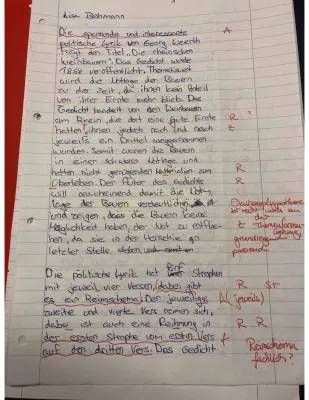 Lisa Bohmann
Die spannende und interessante A
politische Lyrik von Georg Weerth
trägt den Titel „Die rheinischen
Weinbauern". Das Gedicht wurde
veröffentlicht. Thematisiert
wird die Notlage der Bauern
zu der Zeit, da ihnen kein Anteil
von ihrer Ernte mehr blieb. Das
Gedicht handelt von den Weinbauern
am Rhein, die dort eine gute Ernte R
hatten, ihnen jedoch nach und nach Z
jeweils ein Drittel weggenommen
wurde. Somit waren die Bauern
in einer schweren Notlage und
hatten nicht genügend Materialien zum R
Überleben. Der Autor des Gedichts R
will anscheinend damit die Not- R
lage der Bauern verdeutlichen
und zeigen, dass die Bauern keine
Möglichkeit haben, der Not zu entflie- Z
hen, da sie in der Hierarchie an grundlegend
letzter Stelle stehen passend
Die politische Lyrik hat fünf Strophen
mit jeweils vier Versen, dabei gibt
es ein Reimschema. Der jeweilige R St
zweite und vierte Vers reimen sich, A (jeweils)
dabei ist auch eine Reihung in R R
der ersten Strophe vom ersten Vers Reimschema
auf den dritten Vers. Das Gedicht fachlich?